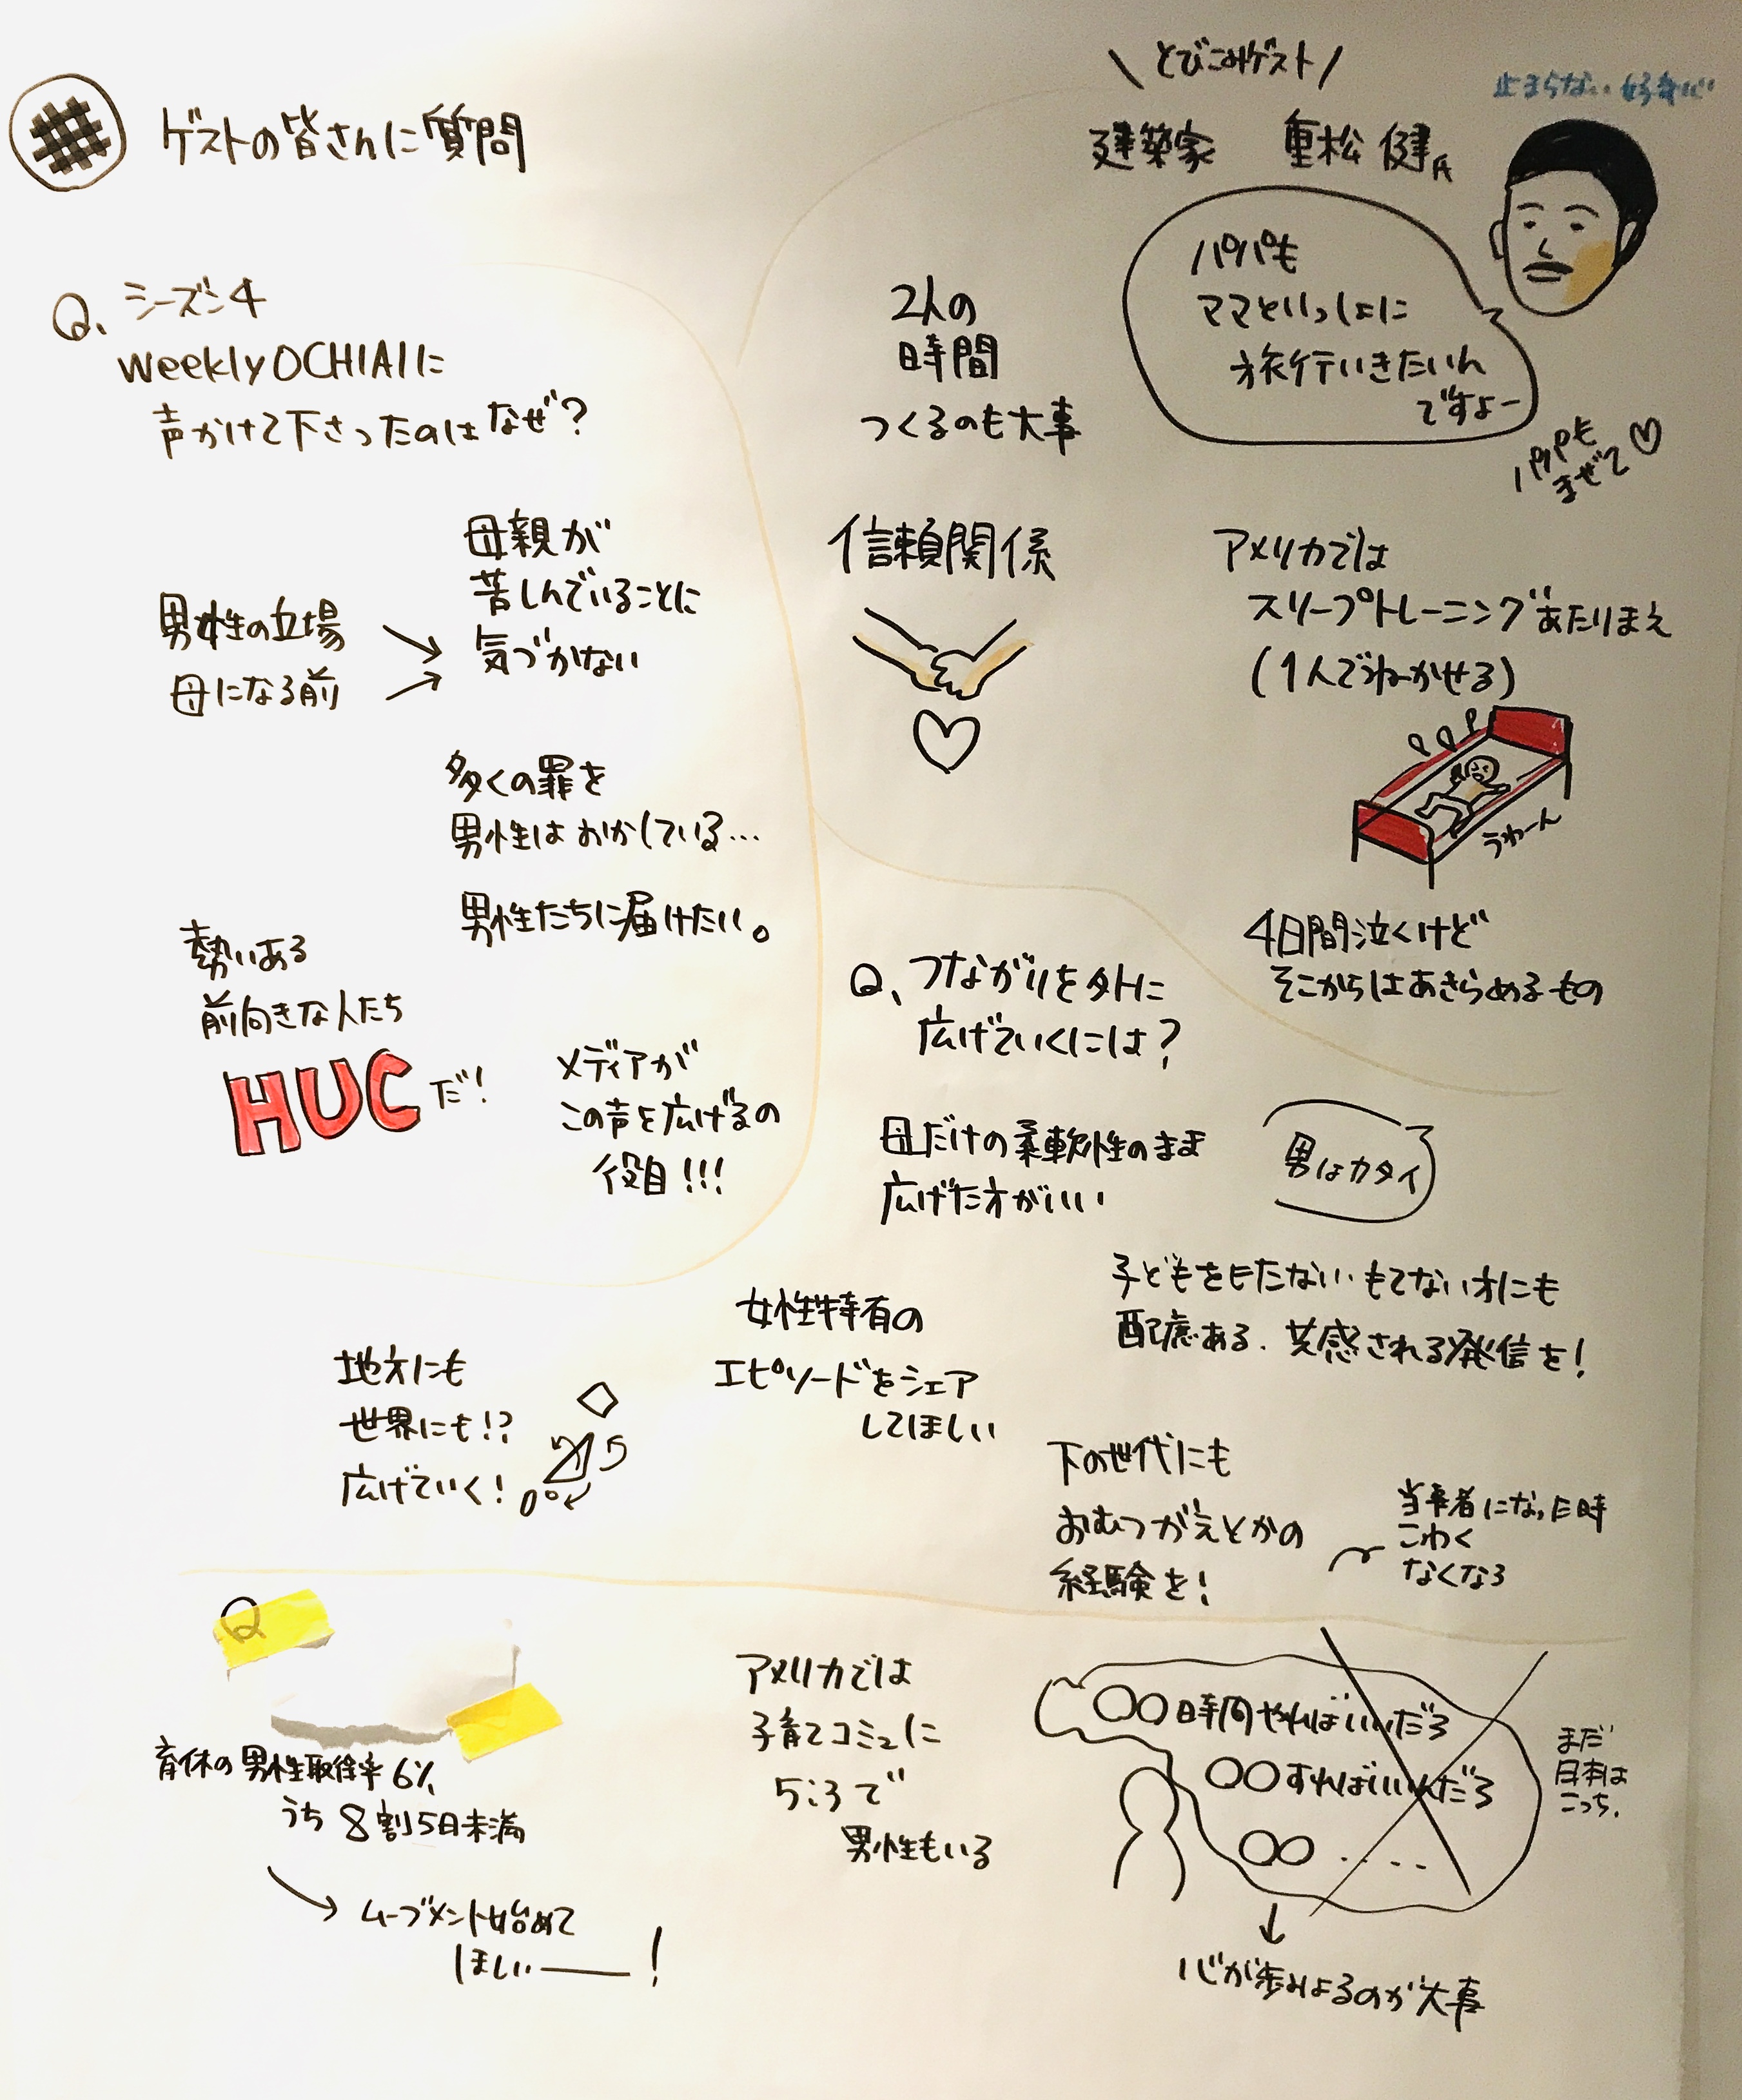 ゲストの皆さんに質問
\ とびこみゲスト /
止まらない好奇心
建築家 重松 健氏
パパも
ママといっしょに
旅行いきたいん
ですよー
パパも
まぜて♡
Q、シーズン4
weeklyOCHIAIに
声かけて下さったのはなぜ?
男性の立場
母になる前
母親が
苦しんでいることに
気づかない
多くの罪を
男性はおかしている…
男性たちに届けたい。
勢いある
前向きな人たち
HUCだ!
メディアが
この声を広げるの
役目!!!
2人の
時間
つくるのも大事
信頼関係
アメリカでは
スリープトレーニングあたりまえ
(1人でねかせる)
うわーん
4日間泣くけど
そこからはあきらめるもの
Q、つながりを外に
広げていくには?
母だけの柔軟性のまま
広げた方がいい
男はカタイ
子どもをもたない・もてない方にも
配慮ある、共感される発信を!
女性特有の
エピソードをシェア
してほしい
地方にも
世界にも!?
広げていく!
下の世代にも
おむつがえとかの
経験を!
当事者になった時
こわく
なくなる
Q
育休の男性取得率6%
うち8割5日未満
ムーブメント始めて
ほしい――!
アメリカでは
子育てコミュに
5:5で
男性もいる
〇〇時間やればいいだろ
〇〇すればいいんだろ
〇〇....
まだ
日本は
こっち.
心が歩みよるのが大事